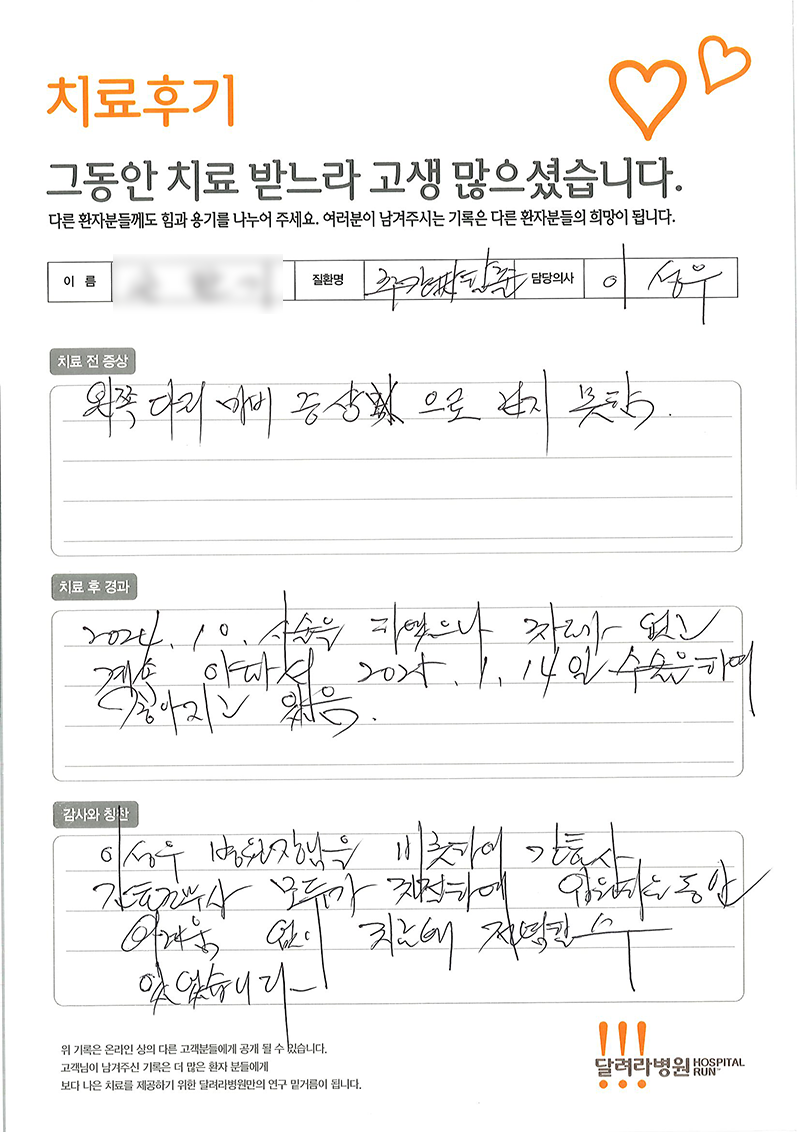 치료후기
그동안 치료 받느라 고생 많으셨습니다.
다른 환자분들께도 힘과 용기를 나누어 주세요. 여러분이 남겨주시는 기록은 다른 환자분들의 희망이 됩니다.
이 름 질환명 담당의사 이 성우
치료 전 증상
왼쪽 다리 마비 증상 으로 걷지 못함.
치료 후 경과
2024. 10. 시술을 하였으나 차도가 없고
계속 아파서 2025. 1. 14일 수술을 하여
좋아지고 있음.
감사와 칭찬
이성우 병원장님을 비롯하여 간호사
간호조무사 모두가 친절하여 입원하는 동안
어려움 없이 치료에 전념할 수
있었습니다
위 기록은 온라인 상의 다른 고객분들에게 공개 될 수 있습니다.
고객님이 남겨주신 기록은 더 많은 환자 분들에게
보다 나은 치료를 제공하기 위한 달려라병원만의 연구 밑거름이 됩니다.
!!!
달려라병원 HOSPITAL RUN